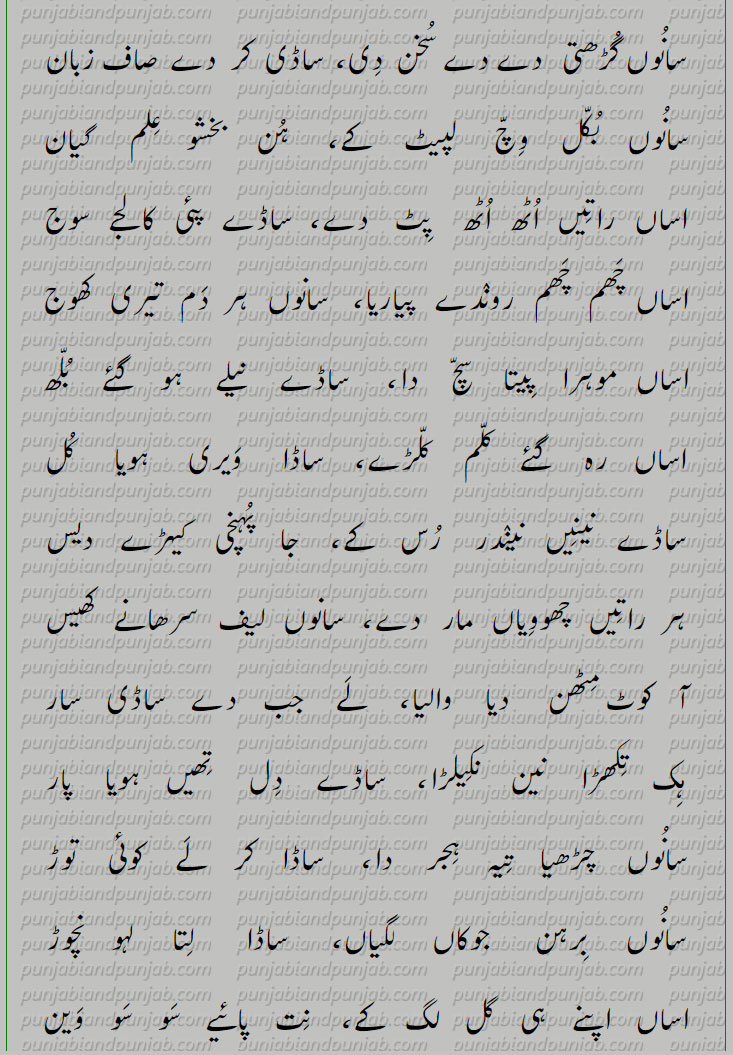 سانُوں گُڑھتی دے دے سُخن دِی، ساڈی کر دے صاف زبان
سانُوں بُکّل وِچّ لپیٹ کے، ہُن بخشو عِلم گیان
اساں راتِیں اُٹھ اُٹھ پِٹ دے، ساڈے پئی کالجے سوج
اساں چَھم چَھم روندے پیاریا، سانوں ہر دَم تیری کھوج
اساں موہرا پِیتا سچّ دا، ساڈے نیلے ہو گئے بُلّھ
اساں رہ گئے کلّم کلّڑے، ساڈا وَیری ہویا کُل
ساڈے نینِیں نیندر رُس کے، جا پُہنچی کیہڑے دیس
ہر راتِیں چھوویاں مار دے، سانوں لیف سرھانے کھیس
آ کوٹ مِٹھن دیا والیا، لَے جب دے ساڈی سار
ہِک تِکھڑا نین نکِیلڑا، ساڈے دِل تِھیں ہویا پار
سانُوں چڑھیا تِیہ ہِجر دا، ساڈا کر لَے کوئی توڑ
سانُوں بِرہن جوکاں لگیاں، ساڈا لِتا لہو نچوڑ
اساں اپنے ہی گل لگ کے، نِت پائیے سَو سَو وَین